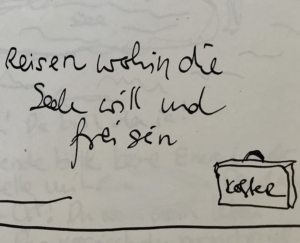 Reisen wohin die
Seele will und
frei sein
Koffer